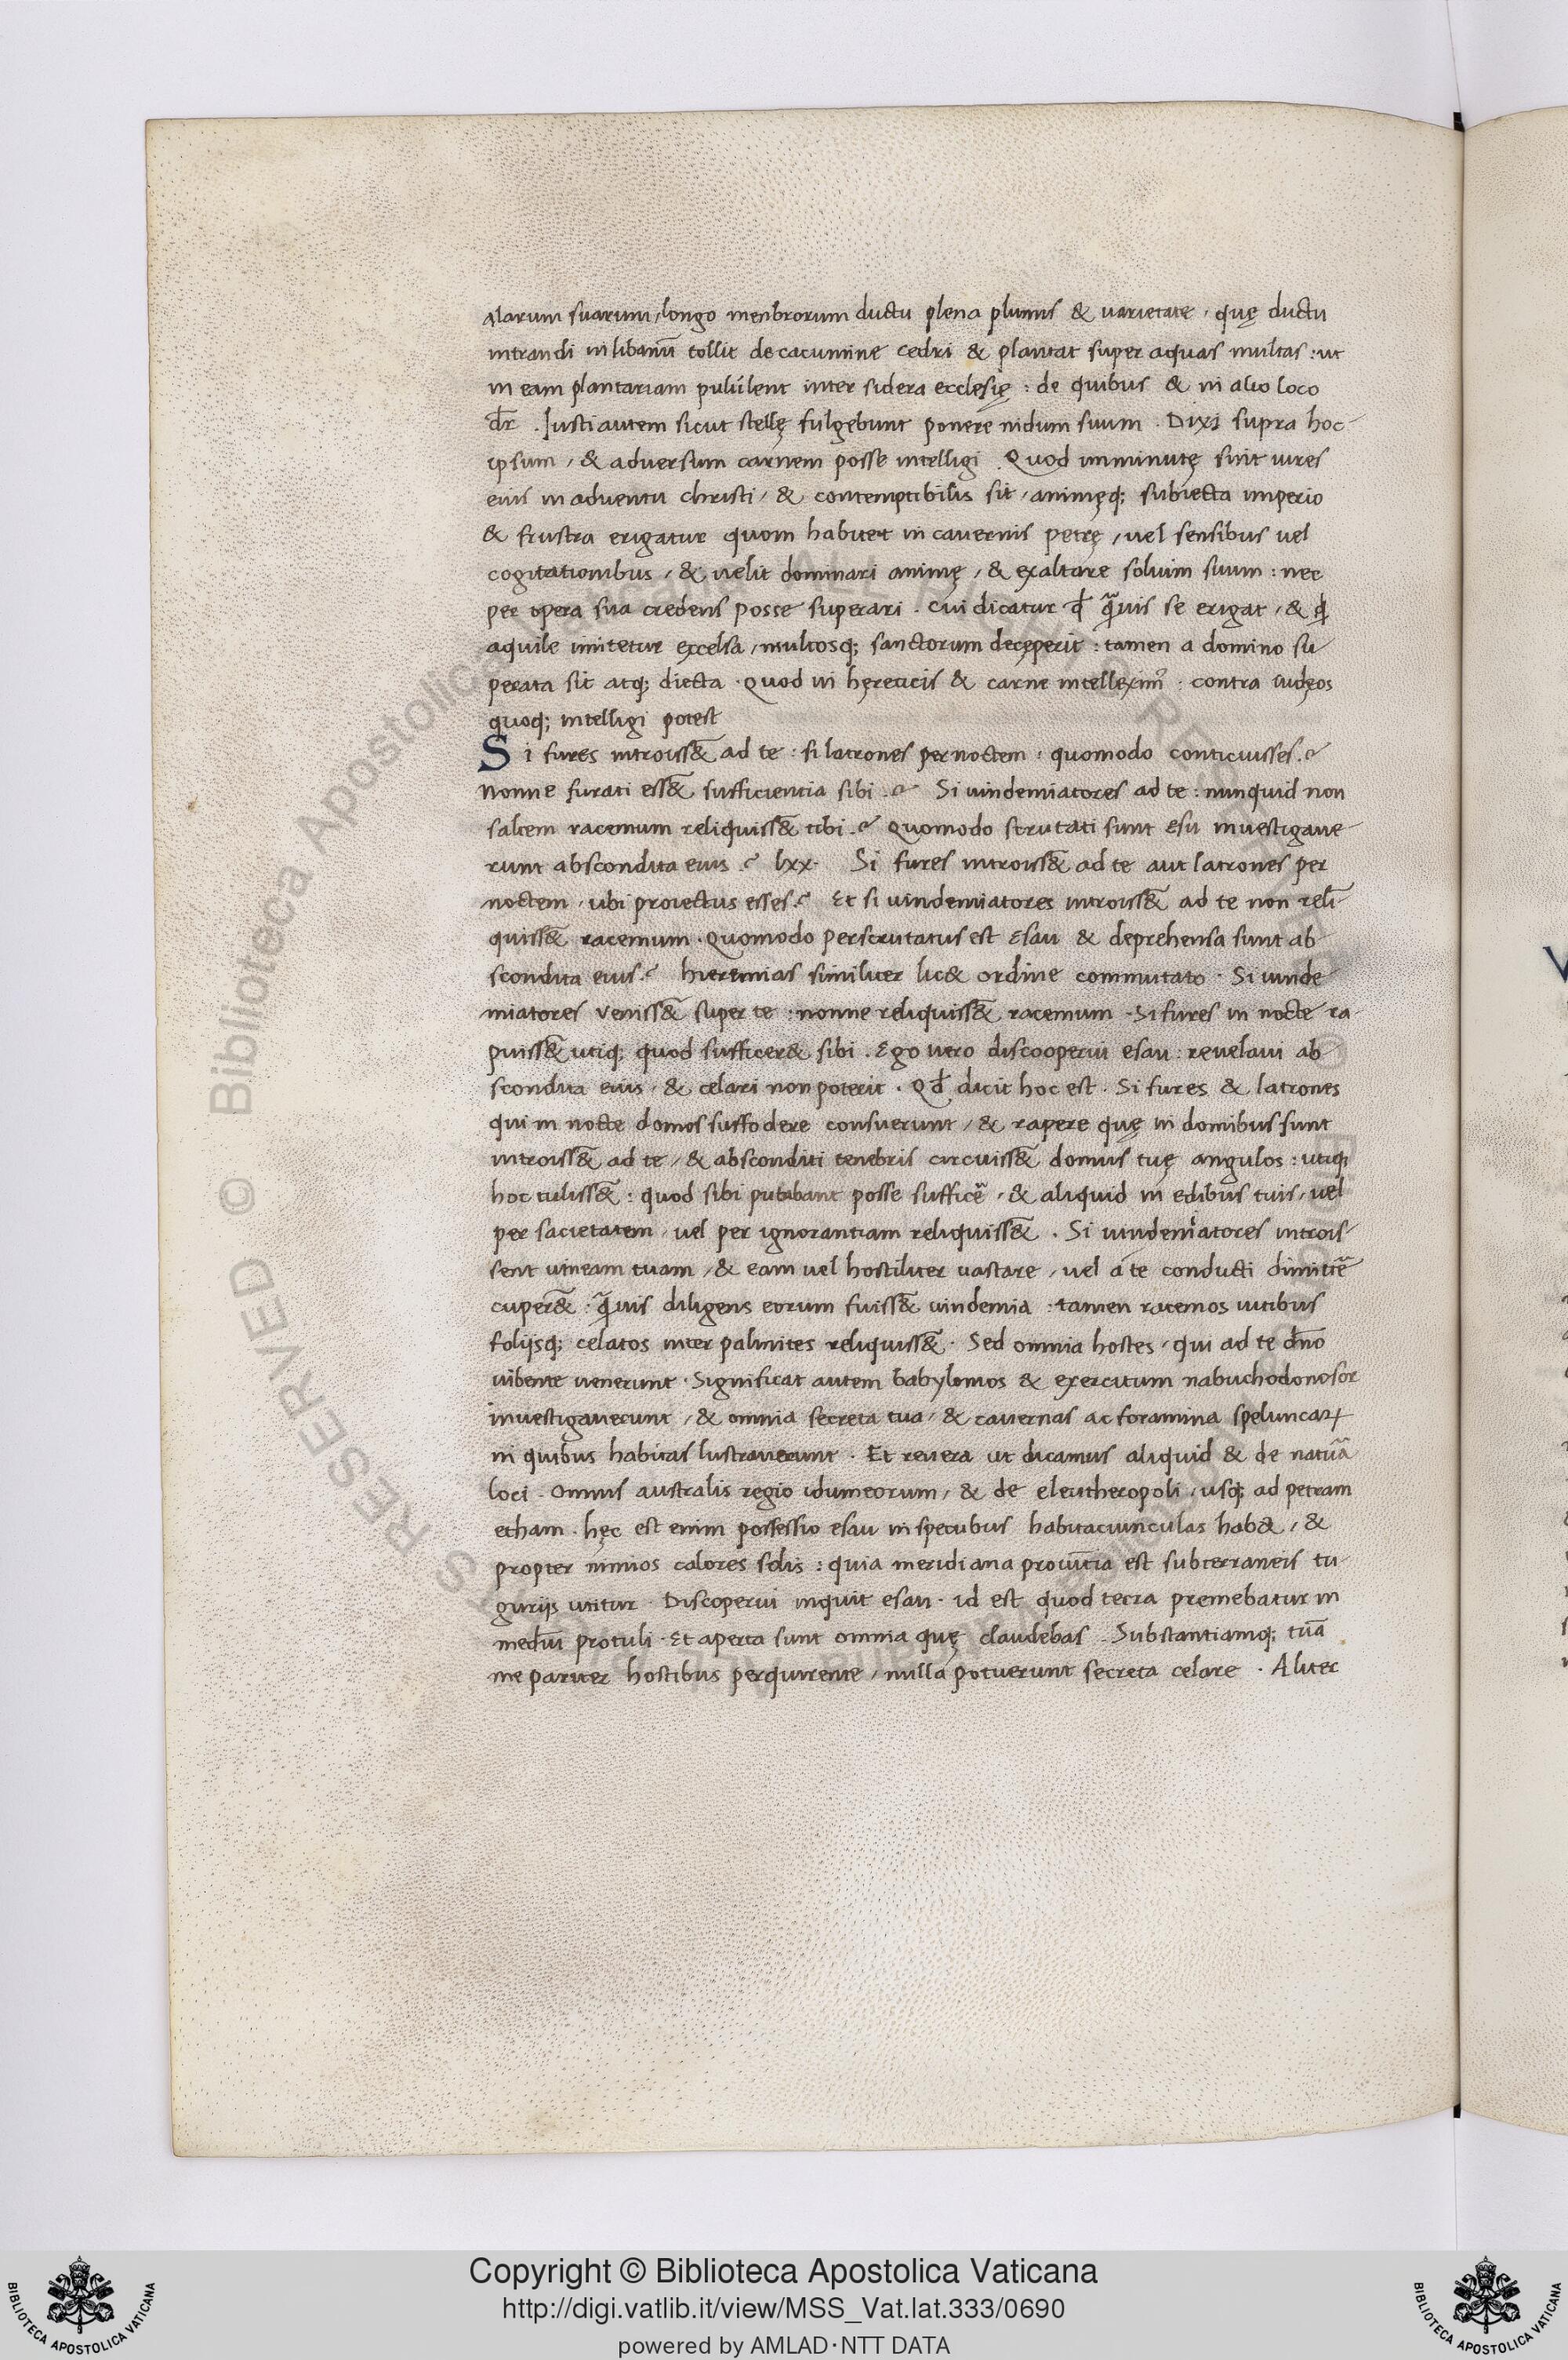 alarum suarum, longo menbrorum ductu plena plumis & varietate, quę ductu
intrandi in libanū tollit de cacumine cedri & plantat super aquas multas: ut
in eam plantariam pululent inter sidera ecclesię: de quibus & in alio loco
dr̄. Justi autem sicut stellę fulgebunt ponere nidum suum. Dixi supra hoc
ipsum, & adversum carnem posse intelligi. Quod imminutę sint vires
eius in adventu christi, & contemptibilis sit, animęq; subiecta imperio
& frustra erigatur quom habitet in cavernis petrę, vel sensibus vel
cogitationibus, & uelit dominari animę, & exaltare solium suum: nec
per opera sua credens posse superari. cui dicatur qđ q̄uis se erigat, & q̄
aquile imitetur excelsa, multosq; sanctorum deceperit: tamen a domino su
perata sit atq; diecta. Quod in hęreticis & carne intellexim9: contra iudęos
quoq; intelligi potest
Si fures introiss& ad te: si latrones per noctem: quomodo conticuisses?
nonne furati ess& sufficientia sibi? Si uindemiatores ad te: nunquid non
saltem racemum reliquiss& tibi? Quomodo scrutati sunt esu investigaue
runt abscondita eius? lxx. Si fures introiss& ad te aut latrones per
noctem, ubi proiectus esses? Et si uindemiatores introiss& ad te non reli
quiss& racemum. Quomodo perscrutatus est Esau & deprehensa sunt ab
scondita eius? hieremias similiter lic& ordine commutato. Si uinde
miatores veniss& super te: nonne reliquiss& racemum. Si fures in nocte ra
puiss& utiq; quod sufficer& sibi. Ego uero discooperui esau: reuelaui ab
scondita eius, & celari non poterit. Qđ dicit hoc est. Si fures & latrones
qui in nocte domos suffodere consuerunt, & rapere quę in domibus sunt
introiss& ad te, & absconditi tenebris circuiss& domus tuę angulos: utiq;
hoc tuliss&: quod sibi putabant posse sufficē, & aliquid in edibus tuis, vel
per sacietatem, uel per ignorantiam reliquiss&. Si uindemiatores introis
sent uineam tuam, & eam uel hostiliter uastare, uel a te conducti dimitē
cuper&: q̄uis diligens eorum fuiss& uindemia: tamen racemos uitibus
folijsq; celatos inter palmites reliquiss&. Sed omnia hostes, qui ad te dn̄o
iubente uenerunt. Significat autem babylonios & exercitum nabuchodonosor
investigauerunt, & omnia secreta tua, & cauernas ac foramina speluncaꝝ
in quibus habitas lustrauerunt. Et reuera ut dicamus aliquid & de natuā
loci. Omnis australis regio idumeorum, & de eleutheropoli, usq; ad petram
etham. hęc est enim possessio esau in specubus habitaciunculas hab&, &
propter nimios calores solis: quia meridiana prouīcia est subterraneis tu
gurijs utitur. Discoperui inquit esau. id est quod terra premebatur in
mediū protuli. Et aperta sunt omnia quę claudebas. Substantiamq; tuā
me pariter hostibus perquirente, nulla potuerunt secreta celare. Aliter
Copyright © Biblioteca Apostolica Vaticana
http://digi.vatlib.it/view/MSS_Vat.lat.333/0690
powered by AMLAD·NTT DATA